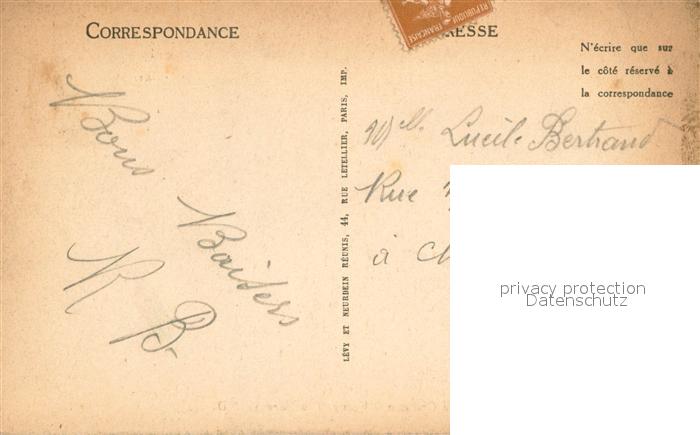 CORRESPONDANCE
RÉPUBLIQUE FRANÇAISE
RESSE
N'écrire que sur
le côté réservé à
la correspondance
Bons
Baisers
R B
LÉVY ET NEURDEIN RÉUNIS, 44, RUE LETELLIER, PARIS, IMP.
Mlle Lucile Bertrand
Rue
à
privacy protection
Datenschutz